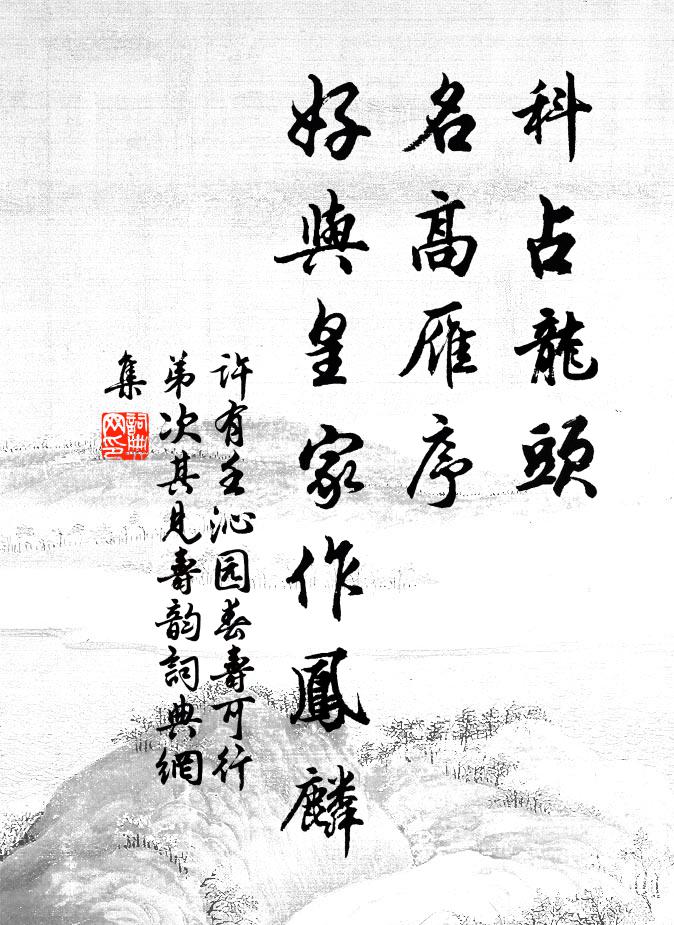 科占龍頭
名高雁序
好與皇家作鳳麟
许有壬沁园春寿可行
弟次其见壽韵詞典網
集
詞典网印